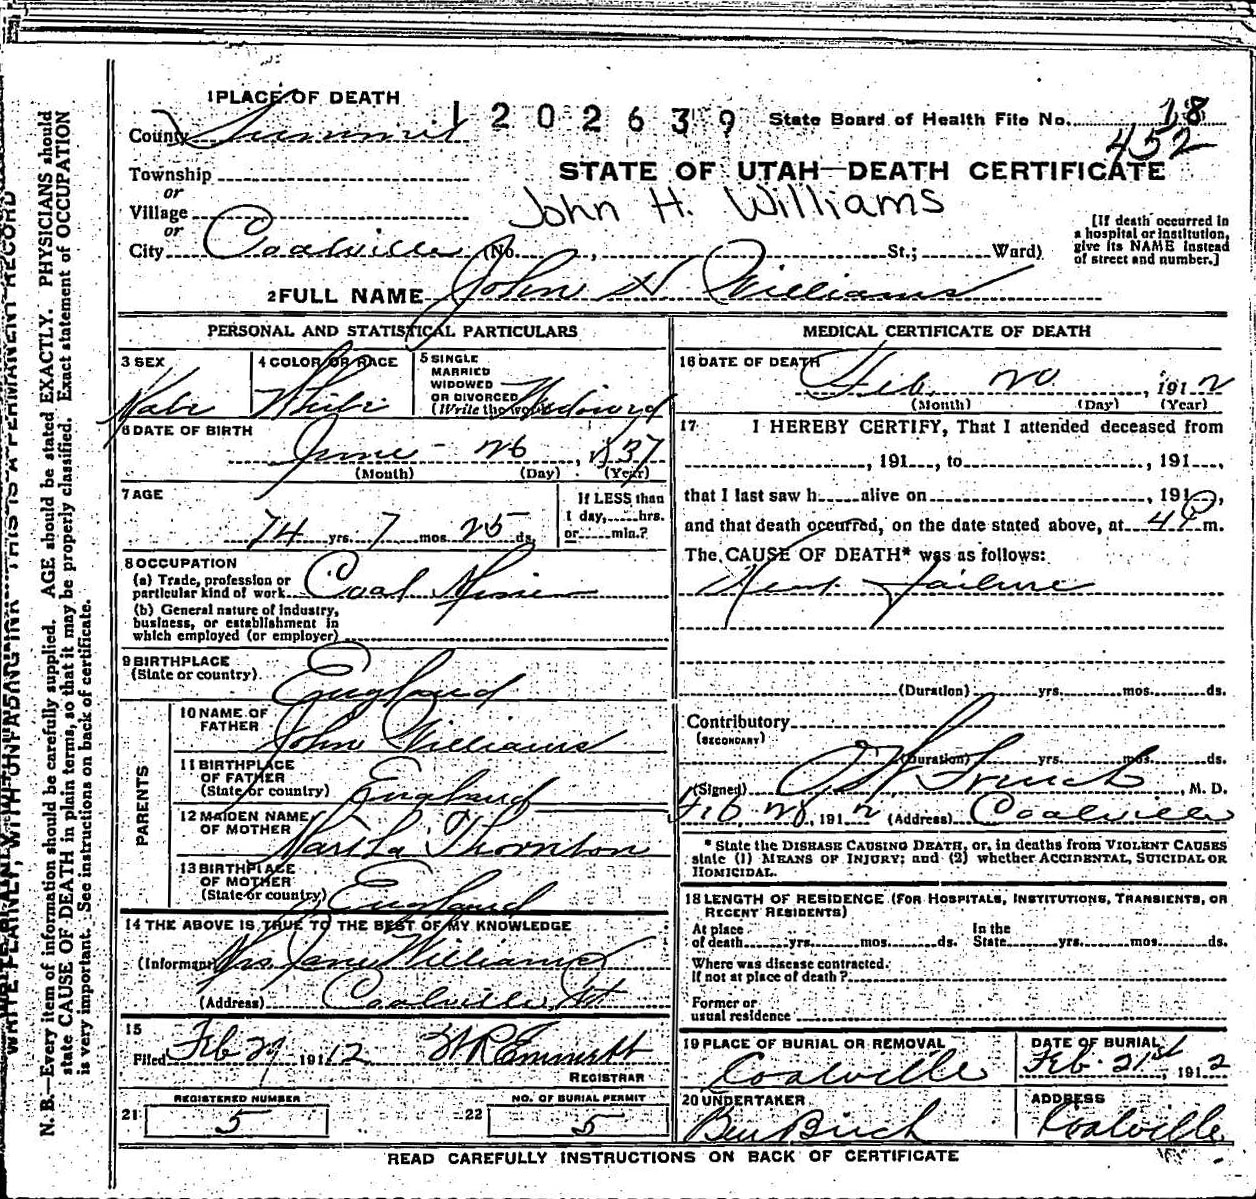 1 PLACE OF DEATH
County Summit
1202639
State Board of Health File No. 18
452
Township
or
Village
or
City Coalville (No. , St.; Ward)
STATE OF UTAH—DEATH CERTIFICATE
John H. Williams
[If death occurred in
a hospital or institution,
give its NAME instead
of street and number.]
2 FULL NAME John H. Williams
PERSONAL AND STATISTICAL PARTICULARS
3 SEX
Male
4 COLOR OR RACE
White
5 SINGLE
MARRIED
WIDOWED
OR DIVORCED
(Write the word)
Widowed
6 DATE OF BIRTH
June - 26, 1837
(Month) (Day) (Year)
7 AGE
74 yrs. 7 mos. 25 ds.
If LESS than
1 day, hrs.
or min.?
8 OCCUPATION
(a) Trade, profession or
particular kind of work Coal Miner
(b) General nature of industry,
business, or establishment in
which employed (or employer)
9 BIRTHPLACE
(State or country)
England
PARENTS
10 NAME OF
FATHER
John Williams
11 BIRTHPLACE
OF FATHER
(State or country) England
12 MAIDEN NAME
OF MOTHER
Martha Thornton
13 BIRTHPLACE
OF MOTHER
(State or country) England
14 THE ABOVE IS TRUE TO THE BEST OF MY KNOWLEDGE
(Informant) Mrs. Jane Williams
(Address) Coalville, Ut
15
Filed Feb 29 1912 W R Emmett
REGISTRAR
REGISTERED NUMBER
21 5
NO. OF BURIAL PERMIT
22 5
MEDICAL CERTIFICATE OF DEATH
16 DATE OF DEATH
Feb. 20, 1912
(Month) (Day) (Year)
17 I HEREBY CERTIFY, That I attended deceased from
, 191 , to , 191 ,
that I last saw h alive on , 191 ,
and that death occurred, on the date stated above, at 4 P m.
The CAUSE OF DEATH* was as follows:
Heart failure
(Duration) yrs. mos. ds.
Contributory
(SECONDARY)
(Duration) yrs. mos. ds.
(Signed) M. D.
Feb 28, 1912 (Address) Coalville
* State the DISEASE CAUSING DEATH, or, in deaths from VIOLENT CAUSES
state (1) MEANS OF INJURY; and (2) whether ACCIDENTAL, SUICIDAL OR
HOMICIDAL.
18 LENGTH OF RESIDENCE (FOR HOSPITALS, INSTITUTIONS, TRANSIENTS, OR
RECENT RESIDENTS)
At place
of death yrs. mos. ds.
In the
State yrs. mos. ds.
Where was disease contracted.
If not at place of death?
Former or
usual residence
19 PLACE OF BURIAL OR REMOVAL
Coalville
DATE OF BURIAL
Feb. 21st, 1912
20 UNDERTAKER
Ben Birch
ADDRESS
Coalville
READ CAREFULLY INSTRUCTIONS ON BACK OF CERTIFICATE
WRITE PLAINLY, WITH UNFADING INK—THIS IS A PERMANENT RECORD
N. B.—Every item of information should be carefully supplied. AGE should be stated EXACTLY. PHYSICIANS should
state CAUSE OF DEATH in plain terms, so that it may be properly classified. Exact statement of OCCUPATION
is very important. See instructions on back of certificate.